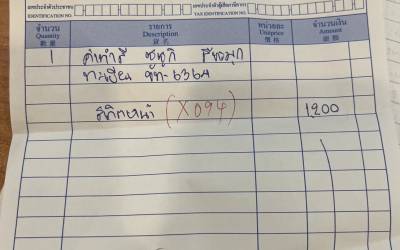 เลขประจำตัวประชาชน
IDENTIFICATION NO.
เลขประจำตัวผู้เสียภาษีอากร
TAX IDENTIFICATION NO.
จำนวน รายการ หน่วยละ จำนวนเงิน
Quantity Description Unitprice Amount
數量 貨名 價格 銀額
1 ค่าทำสี ซูซูกิ
ทะเบียน
(X094) 1200